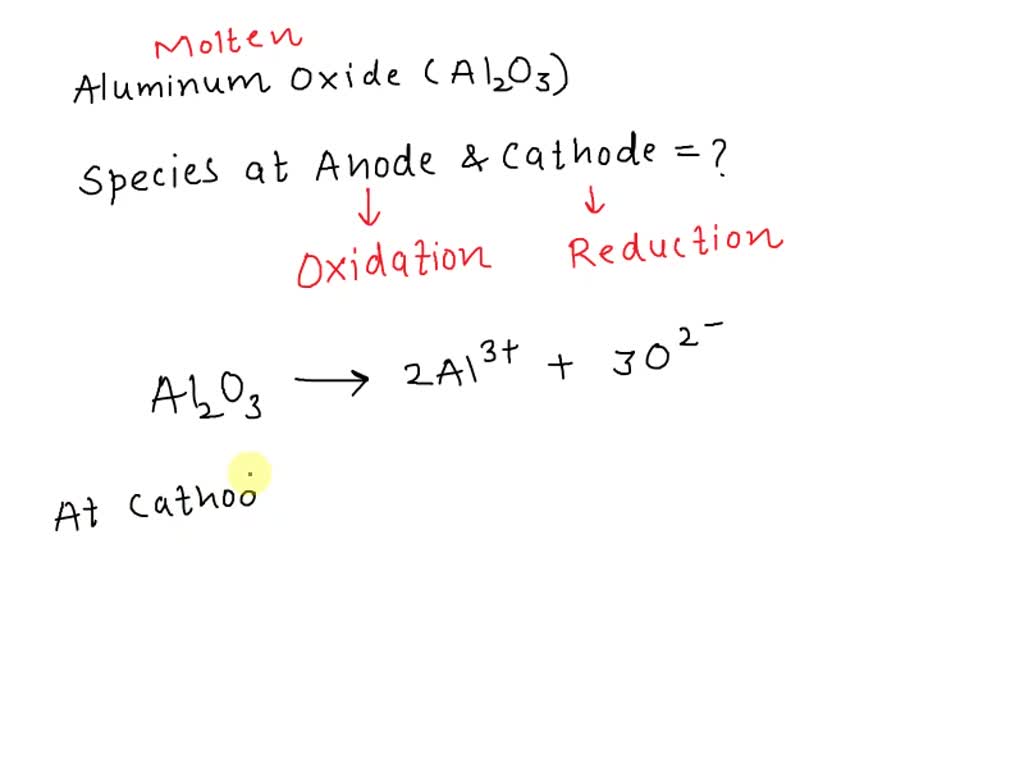 Molten
Aluminum Oxide (Al₂O₃)
Species at Anode & Cathode = ?
↓ ↓
Oxidation Reduction
Al₂O₃ ⟶ 2Al³⁺ + 3O²⁻
At Cathod